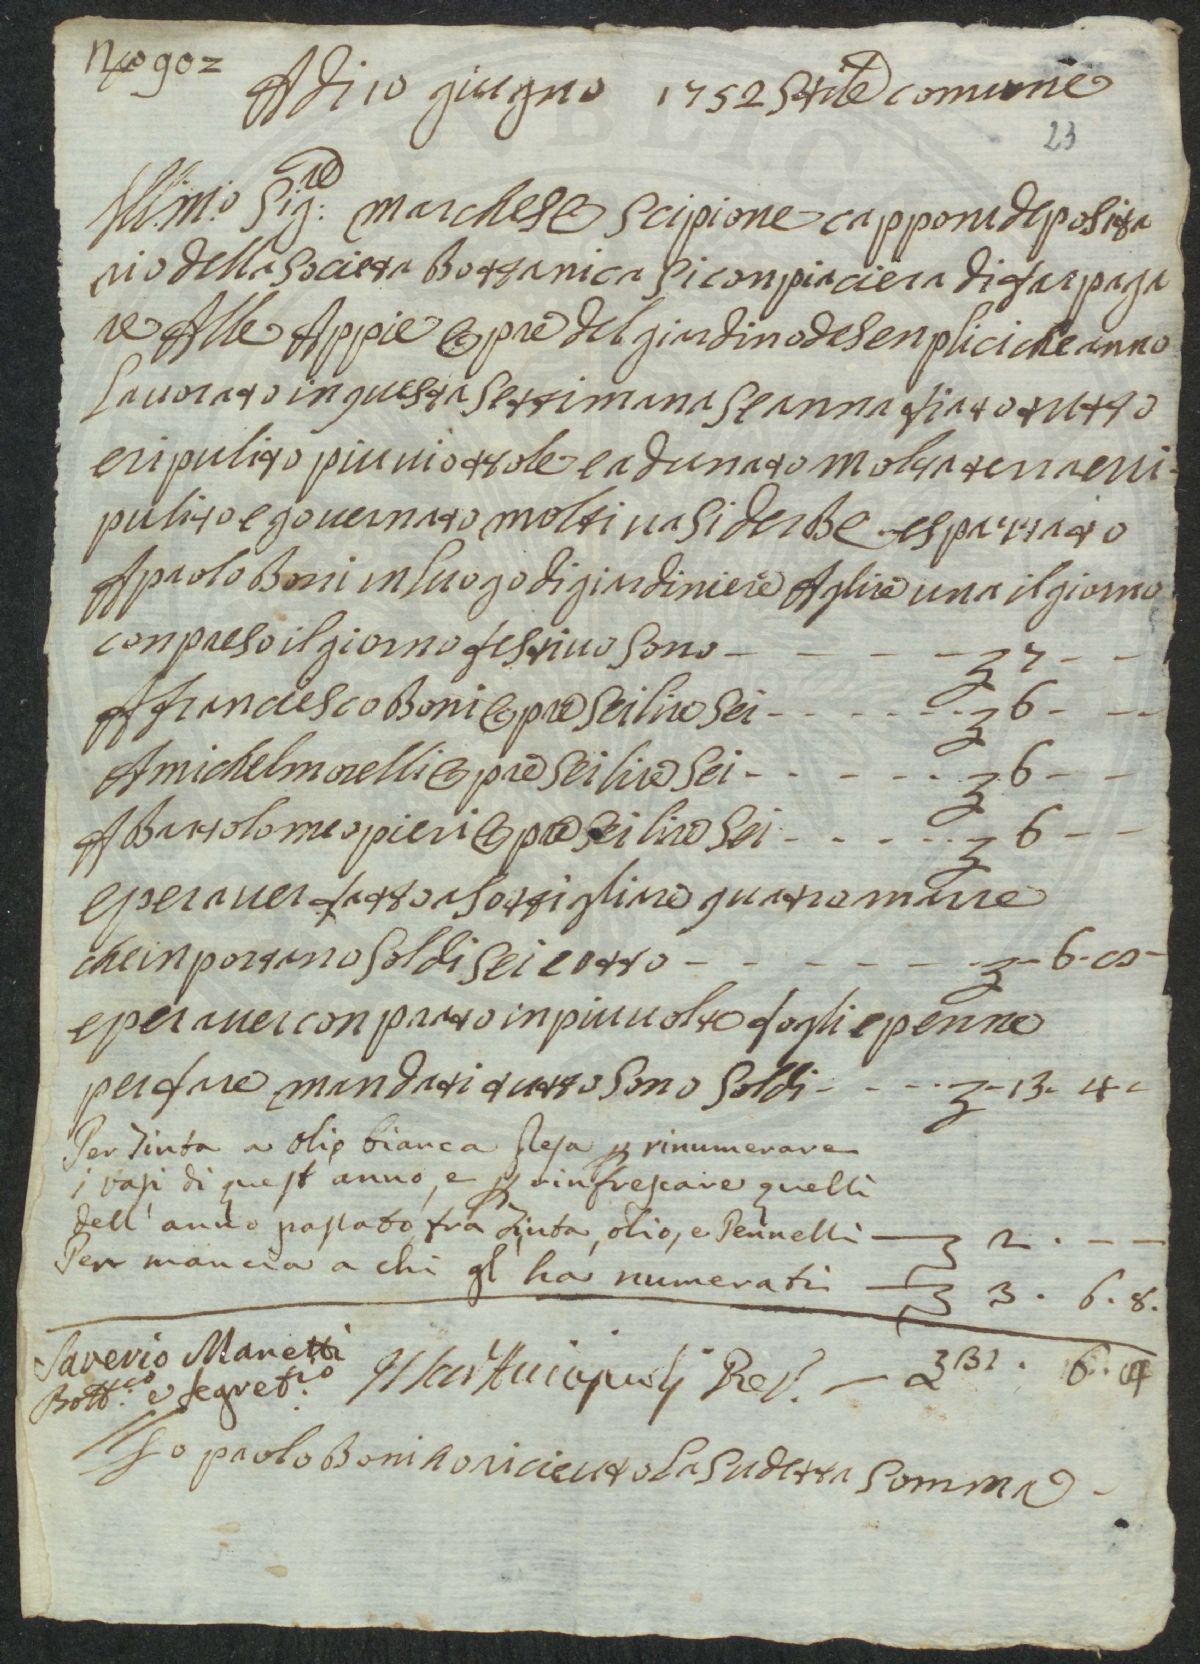 No 90=
Adi 10 giugno 1752 Stile comune
23
Illmo. Sig:re marchese Scipione capponi deposita
rio della Societa Bottanica Si conpiaciera di far paga
re Alle Appie Opre del giardino de Senplici che anno
Lavorato in questa Settimana Se anna fiato tutto
e ripulito piu viottole e adunato molta terra e ri
pulito e governato molti vasi derbe e spazzato
A paolo Boni in luogo di giardiniere A lire una il giorno
conpreso il giorno festivo Sono - - - - 7 - -
A franciesco Boni Opre Sei lire Sei - - - - 6 - -
A michel morelli Opre Sei lire Sei - - - - 6 - -
A Bartolomeo pieri Opre Sei lire Sei - - - - 6 - -
e per aver fatto asottigliare quatro marre
che inportano Soldi Sei e otto - - - - - 6 - 8 -
e per aver conprato in piu volte fogli e penne
per fare mandati tutto Sono Soldi - - - - 13. 4 -
Per Tinta a olio bianca presa p rinumerare
i vasi di quest' anno, e p rinfrescare quelli
dell' anno passato, fra Tinta, olio, e Pennelli — 2 . - -
Per mancia a chi gl' ha numerati — 3 . 6 . 8.
Saverio Manetti
Bott:co e Segret:rio
Rev. — 31 . 6 . 8
Io paolo Boni o riceuto La Sudetta Somma -